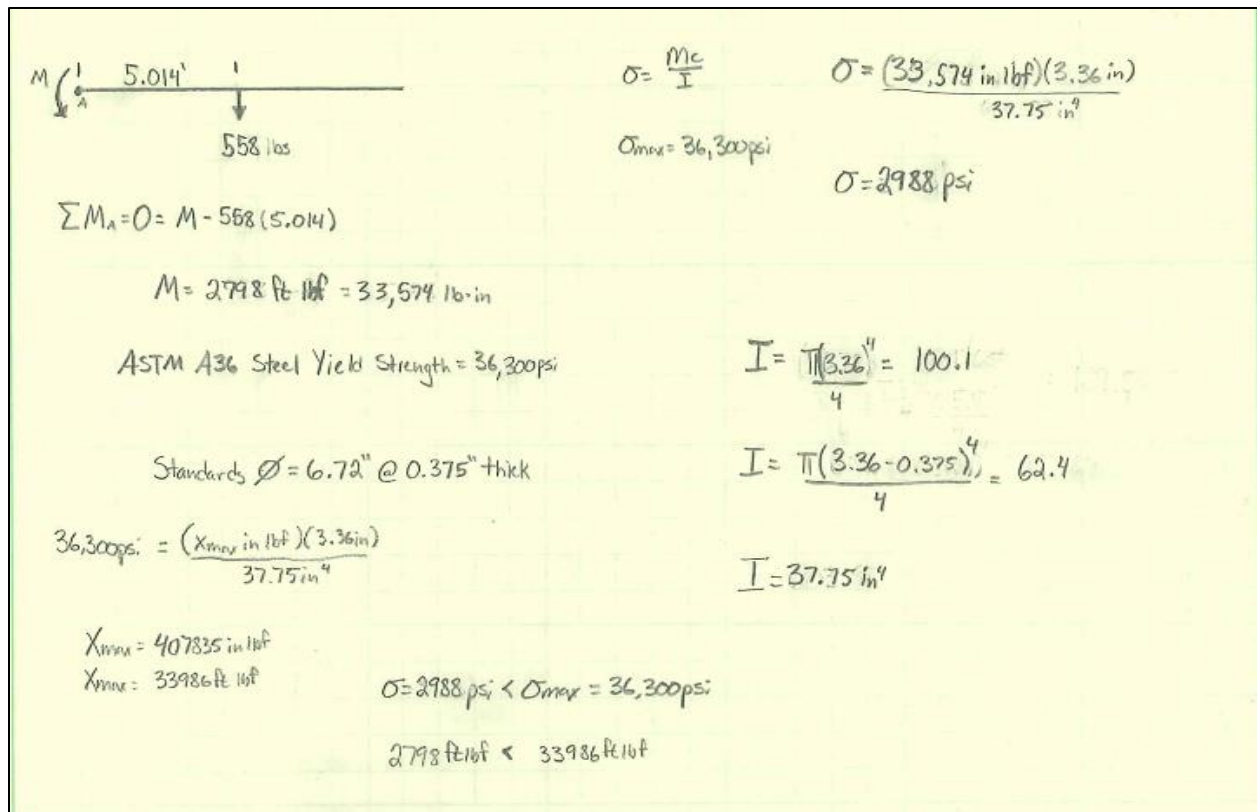 M
5.014'
A
558 lbs
ΣM_A = 0 = M - 558(5.014)
M = 2798 ft lbf = 33,574 lb·in
ASTM A36 Steel Yield Strength = 36,300psi
Standards Ø = 6.72" @ 0.375" thick
36,300psi = (X_max in lbf)(3.36in) / 37.75in⁴
X_max = 407835 in lbf
X_max = 33986 ft lbf
σ = Mc / I
σ_max = 36,300psi
σ = (33,574 in lbf)(3.36 in) / 37.75 in⁴
σ = 2988 psi
I = π(3.36)⁴ / 4 = 100.1
I = π(3.36-0.375)⁴ / 4 = 62.4
I = 37.75 in⁴
σ = 2988 psi < σ_max = 36,300psi
2798 ft lbf < 33986 ft lbf